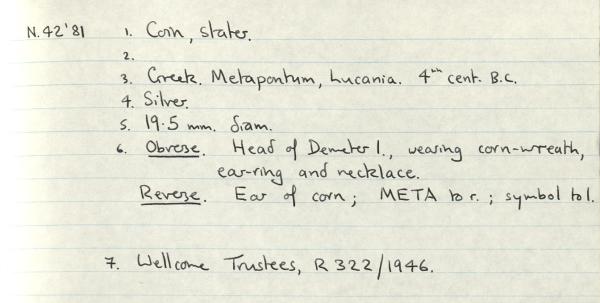 N.42'81 1. Coin, stater.
2.
3. Greek. Metapontum, Lucania. 4th cent. B.C.
4. Silver.
5. 19.5 mm. diam.
6. Obverse. Head of Demeter l., wearing corn-wreath,
ear-ring and necklace.
Reverse. Ear of corn; META to r.; symbol to l.
7. Wellcome Trustees, R 322/1946.